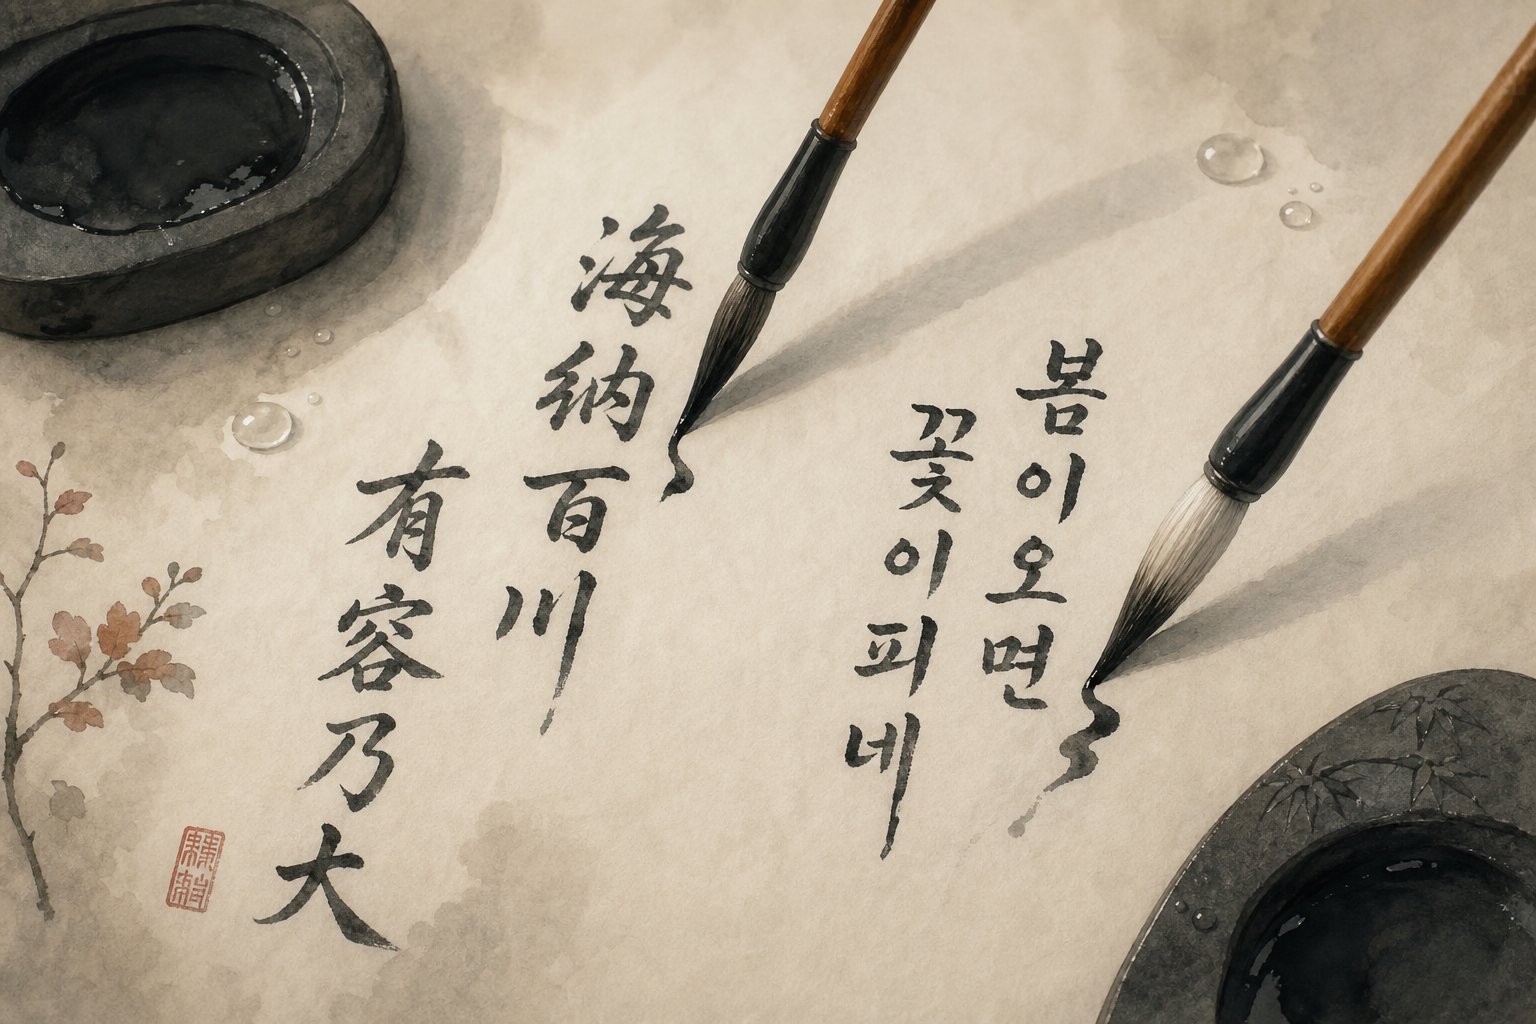 海納百川
有容乃大
봄이오면
꽃이피네